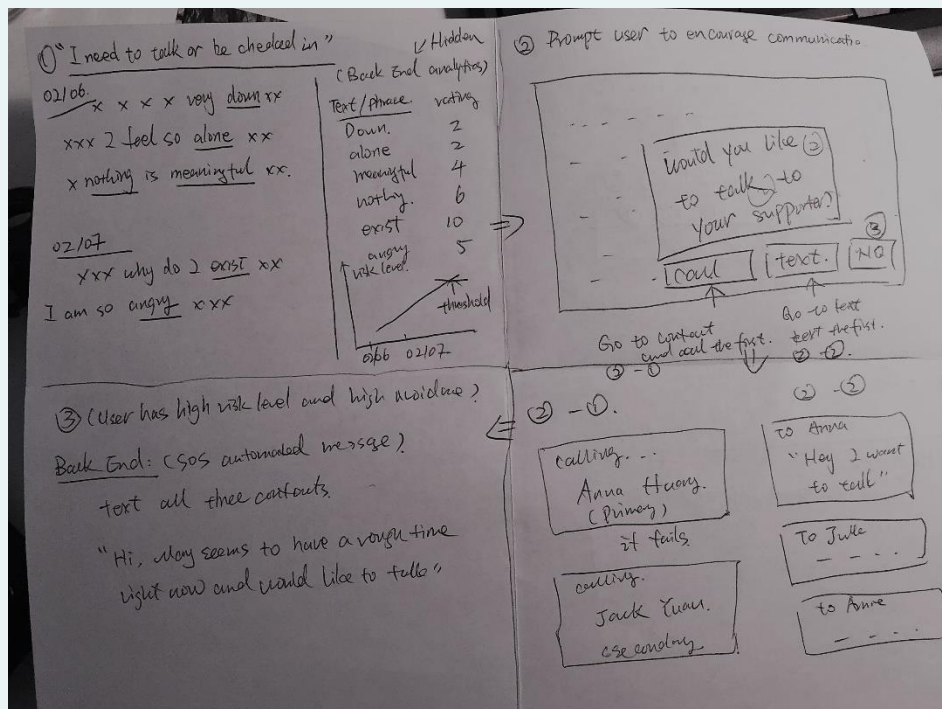 ① "I need to talk or be checked in"
02/06
x x x x very down xx
xxx I feel so alone xx
x nothing is meaningful xx.
02/07
xxx why do I exist xx
I am so angry xxx
Hidden
(Back End analytics)
Text/phrase rating
Down. 2
alone 2
meaningful 4
nothing. 6
exist 10
angry 5
risk level
threshold
02/06 02/07
② Prompt user to encourage communicatio
Would you like ②
to talk to
your supporter?
③
call text. NO
Go to contact
and call the first.
②-①
Go to text
text the first.
②-②.
③ (User has high risk level and high avoidance)
Back End: (SOS automated message)
text all three contacts.
"Hi, May seems to have a rough time
right now and would like to talk"
②-①.
calling...
Anna Huang.
(Primary)
if fails
calling.
Jack Yuan.
secondary
②-②
to Anna
"Hey I want
to talk"
To
to Anne